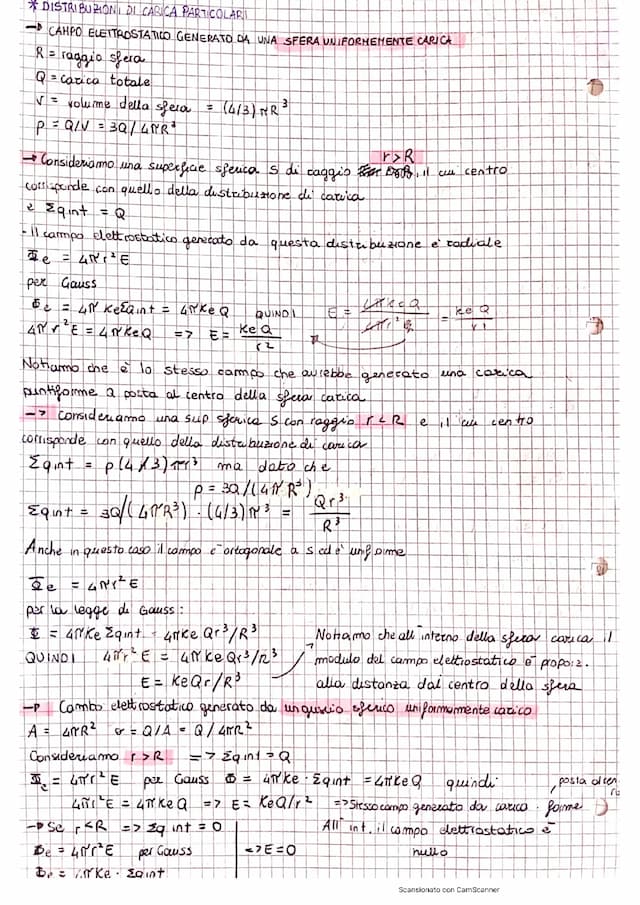 * DISTRIBUZIONI DI CARICA PARTICOLARI
→ CAMPO ELETTROSTATICO GENERATO DA UNA SFERA UNIFORMEMENTE CARICA
R = raggio sfera
Q = carica totale
V = volume della sfera = (4/3)πR³
ρ = Q/V = 3Q/4πR³
→ Consideriamo una superficie sferica S di raggio r>R, il cui centro
corrisponde con quello della distribuzione di carica
e Σqint = Q
- Il campo elettrostatico generato da questa distribuzione è radiale
Φe = 4πr²E
per Gauss
Φe = 4πKeΣqint = 4πKeQ QUINDI E = 4πKeQ/4πr² = KeQ/r²
4πr²E = 4πKeQ => E = KeQ/r²
Notiamo che è lo stesso campo che avrebbe generato una carica
puntiforme Q posta al centro della sfera carica
→ Consideriamo una sup sferica S con raggio r<R e il cui centro
corrisponde con quello della distribuzione di carica
Σqint = ρ(4/3)πr³ ma dato che
ρ = 3Q/(4πR³)
Σqint = 3Q/(4πR³) · (4/3)πr³ = Qr³/R³
Anche in questo caso il campo è ortogonale a S ed è uniforme
Φe = 4πr²E
per la legge di Gauss:
Φ = 4πKe Σqint = 4πKe Qr³/R³
QUINDI 4πr²E = 4πKeQr³/R³
E = KeQr/R³
Notiamo che all'interno della sfera carica il
modulo del campo elettrostatico è proporz.
alla distanza dal centro della sfera
→ Campo elettrostatico generato da un guscio sferico uniformemente carico
A = 4πR² σ = Q/A = Q/4πR²
Consideriamo r>R => Σqint = Q
Φe = 4πr²E per Gauss Φ = 4πKe · Σqint = 4πKeQ quindi
4πr²E = 4πKeQ => E = KeQ/r² => Stesso campo generato da carica forme
posta al cen
→ Se r<R => Σqint = 0
Φe = 4πr²E per Gauss => E=0
Φe = 4πKe · Σqint
All'int. il campo elettrostatico è
nullo
Scansionato con CamScanner